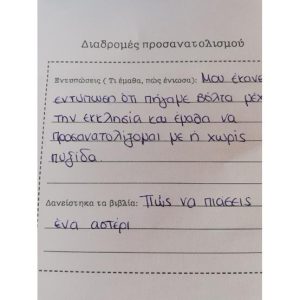 Διαδρομές προσανατολισμού
Εντυπώσεις ( Τι έμαθα, πώς ένιωσα): Μου έκανε
εντύπωση ότι πήγαμε βόλτα μέχ
την εκκλησία και έμαθα να
προσανατολίζομαι με ή χωρίς
πυξίδα.
Δανείστηκα τα βιβλία: Πώς να πιάσεις
ένα αστέρι